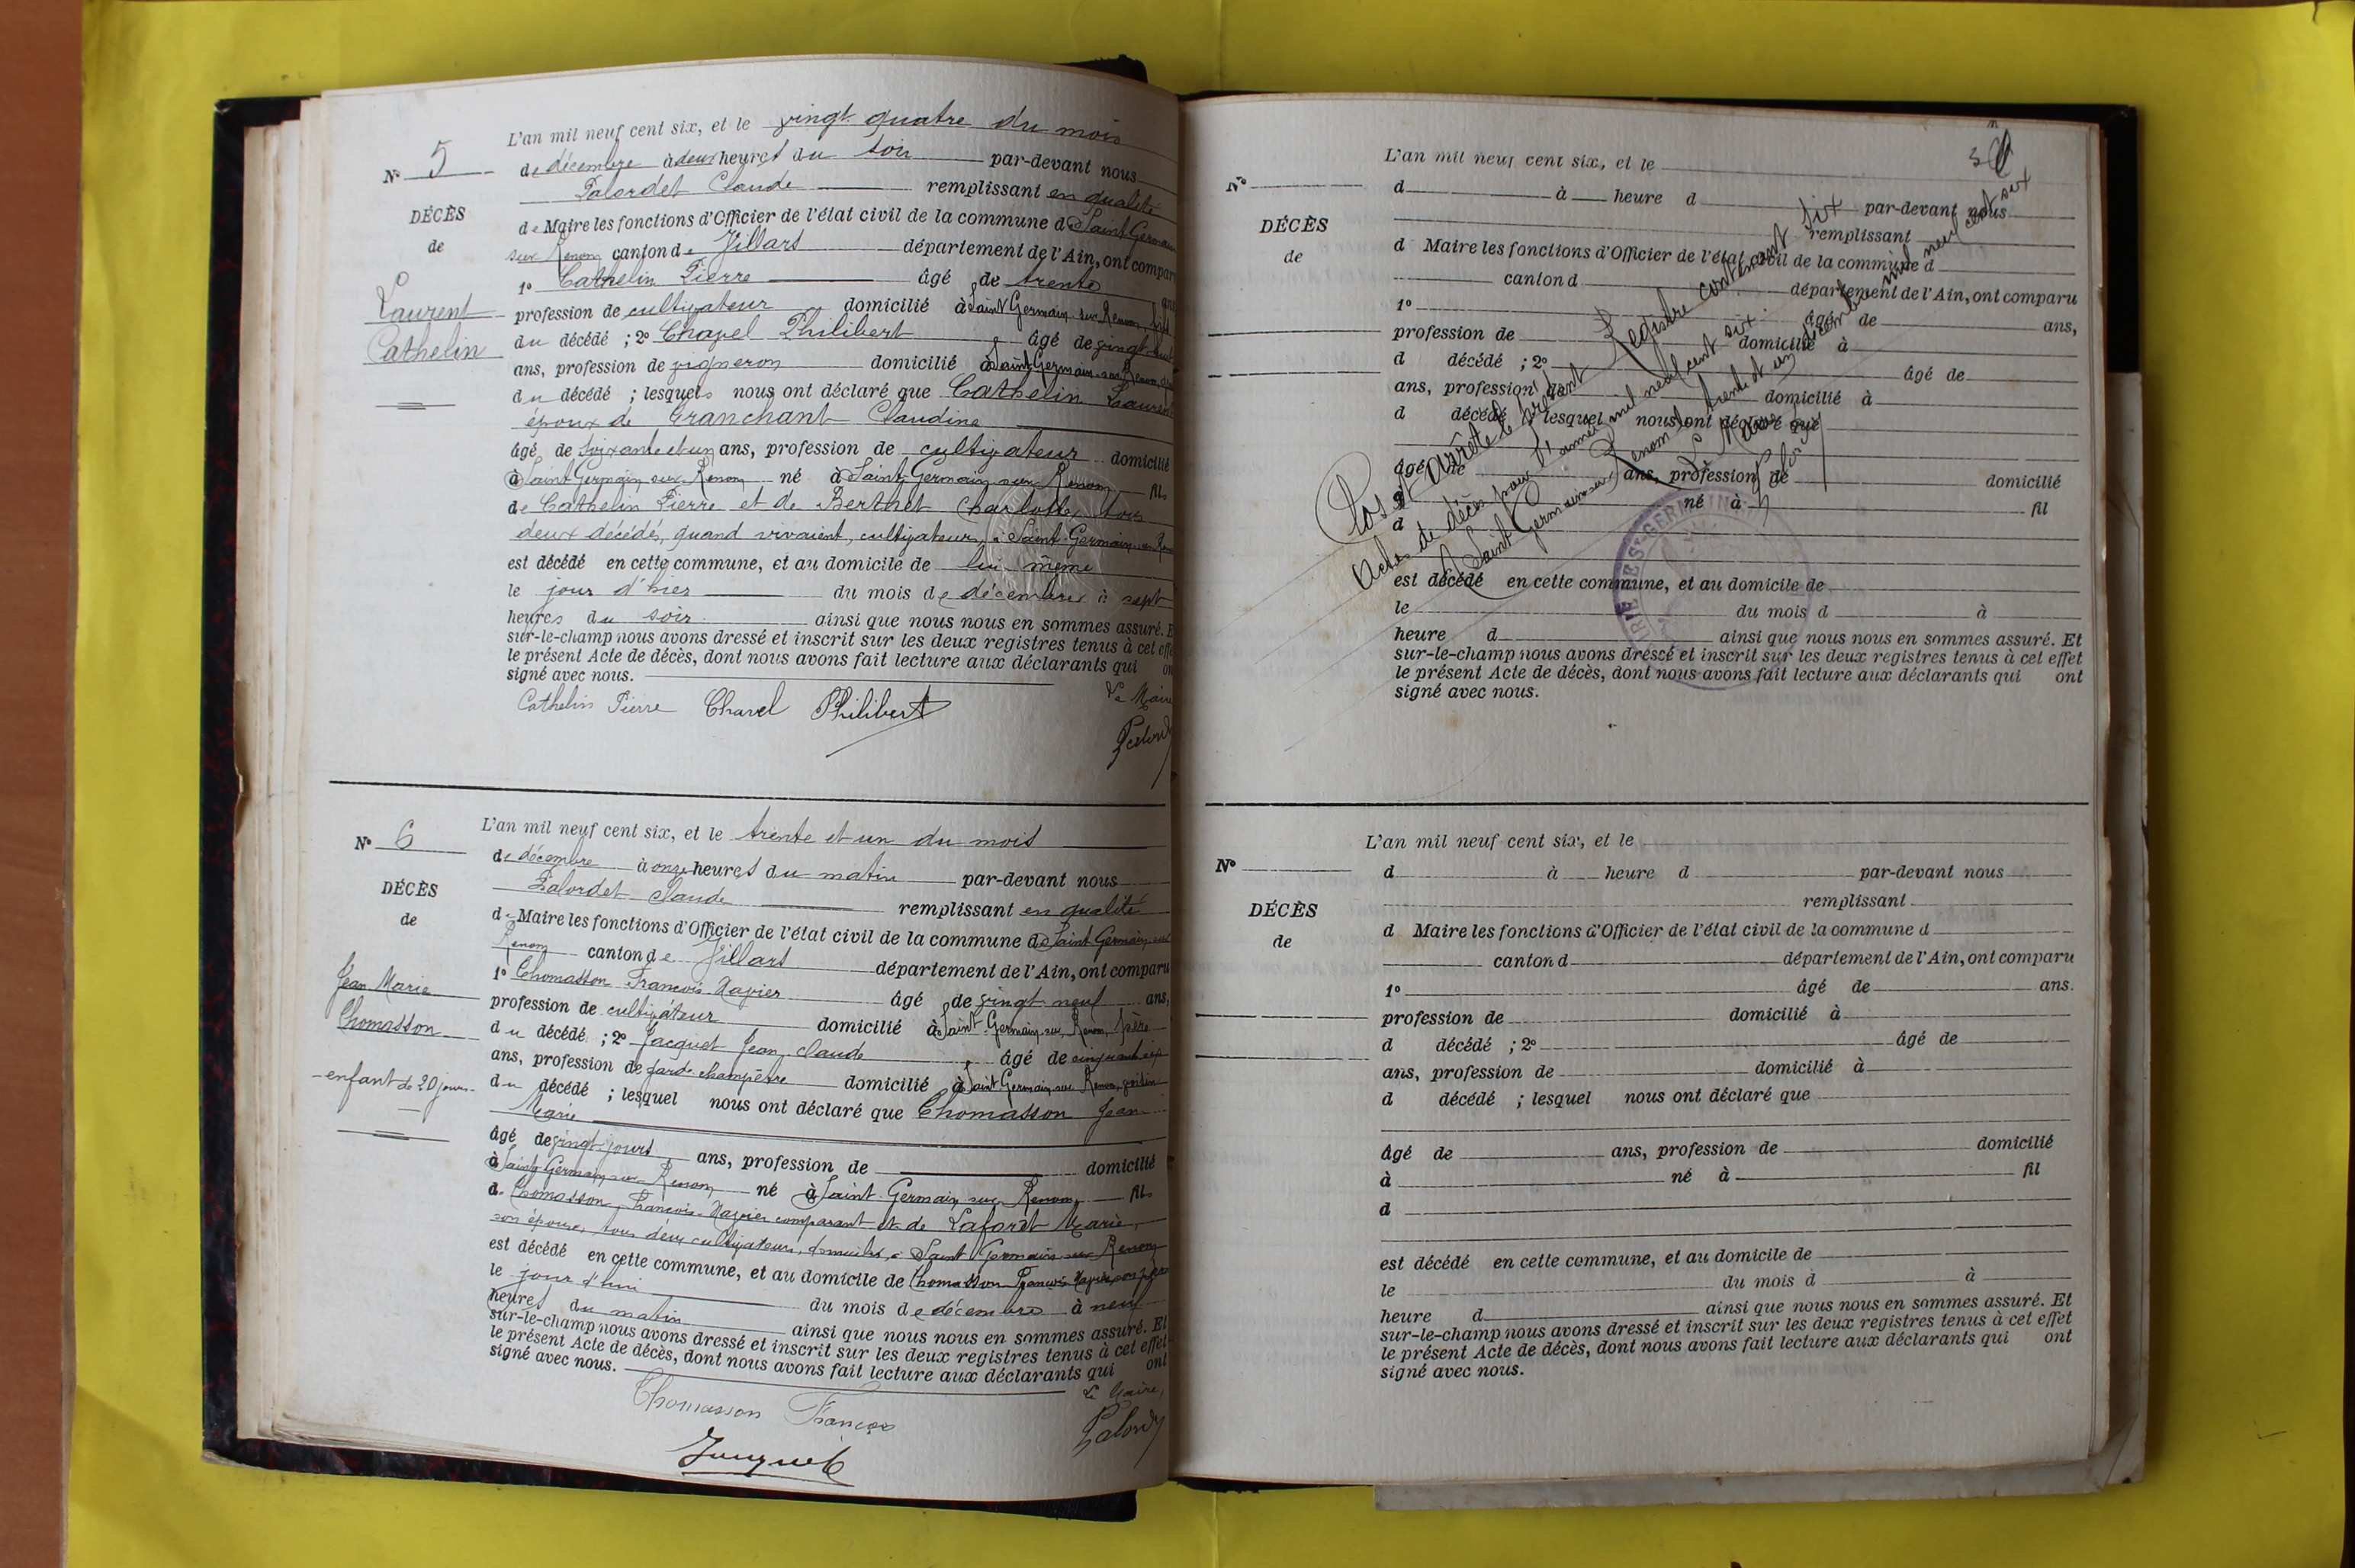 L'an mil neuf cent six, et le vingt quatre du mois
N° 5
de décembre à deux heures du soir par-devant nous
Palordet Claude remplissant en qualité
DÉCÈS
de Maire les fonctions d'Officier de l'état civil de la commune de Saint Germain
de
sur Renom canton de Villars département de l'Ain, ont compar
1° Cathelin Pierre âgé de trente ans
Laurent
profession de cultivateur domicilié à Saint Germain sur Renom, fils
Cathelin
du décédé ; 2° Chavel Philibert âgé de vingt
ans, profession de vigneron domicilié à Saint Germain sur Renom,
du décédé ; lesquels nous ont déclaré que Cathelin Laurent
époux de Granchant Claudine
âgé de soixante et un ans, profession de cultivateur domicilié
à Saint Germain sur Renom né à Saint Germain sur Renom fils
de Cathelin Pierre et de Berthet Charlotte tous
deux décédé, quand vivaient, cultivateurs à Saint-Germain
est décédé en cette commune, et au domicile de lui-même
le jour d'hier du mois de décembre à sept
heures du soir ainsi que nous nous en sommes assuré. E
sur-le-champ nous avons dressé et inscrit sur les deux registres tenus à cet effe
le présent Acte de décès, dont nous avons fait lecture aux déclarants qui on
signé avec nous.
Cathelin Pierre Chavel Philibert Le Maire
Palordet
L'an mil neuf cent six, et le trente et un du mois
N° 6
de décembre à onze heures du matin par-devant nous
Palordet Claude remplissant en qualité
DÉCÈS
de Maire les fonctions d'Officier de l'état civil de la commune de Saint Germain sur
de
Renom canton de Villars département de l'Ain, ont comparu
1° Thomasson François Xavier âgé de vingt neuf ans,
Jean Marie
profession de cultivateur domicilié à Saint-Germain sur Renom, père
Thomasson
du décédé ; 2° Jacquet Jean Claude, âgé de cinquante six
ans, profession de garde champêtre domicilié à Saint Germain sur Renom, voisin
enfant de 20 jours
du décédé ; lesquel nous ont déclaré que Thomasson Jean
Marie
âgé de vingt jours ans, profession de domicilié
à Saint Germain sur Renom né à Saint-Germain sur Renom fils
de Thomasson François-Xavier comparant et de Laforêt Marie,
son épouse, tous deux cultivateurs, domiciliés à Saint Germain sur Renom
est décédé en cette commune, et au domicile de Thomasson François Xavier son père
le jour d'hui du mois de décembre à neuf
heures du matin ainsi que nous nous en sommes assuré. Et
sur-le-champ nous avons dressé et inscrit sur les deux registres tenus à cet effet
le présent Acte de décès, dont nous avons fait lecture aux déclarants qui ont
signé avec nous.
Le Maire,
Thomasson François
Palordet
Jacquet
L'an mil neuf cent six, et le
N°
d à heure d par-devant nous
remplissant
DÉCÈS
d Maire les fonctions d'Officier de l'état civil de la commune d
de
canton d département de l'Ain, ont comparu
1° âgé de ans,
profession de domicilié à
d décédé ; 2° âgé de
ans, profession de domicilié à
d décédé ; lesquel nous ont déclaré que
âgé de ans, profession de domicilié
à né à fil
d
est décédé en cette commune, et au domicile de
le du mois d à
heure d ainsi que nous nous en sommes assuré. Et
sur-le-champ nous avons dressé et inscrit sur les deux registres tenus à cet effet
le présent Acte de décès, dont nous avons fait lecture aux déclarants qui ont
signé avec nous.
Clos et arrêté le présent Registre contenant six
Actes de décès pour l'année mil neuf cent six.
Saint Germain sur Renom le trente et un décembre mil neuf cent six
Le Maire
Palordet
MAIRIE DE ST-GERMAIN
L'an mil neuf cent six, et le
N°
d à heure d par-devant nous
remplissant
DÉCÈS
d Maire les fonctions d'Officier de l'état civil de la commune d
de
canton d département de l'Ain, ont comparu
1° âgé de ans.
profession de domicilié à
d décédé ; 2° âgé de
ans, profession de domicilié à
d décédé ; lesquel nous ont déclaré que
âgé de ans, profession de domicilié
à né à fil
d
est décédé en cette commune, et au domicile de
le du mois d à
heure d ainsi que nous nous en sommes assuré. Et
sur-le-champ nous avons dressé et inscrit sur les deux registres tenus à cet effet
le présent Acte de décès, dont nous avons fait lecture aux déclarants qui ont
signé avec nous.